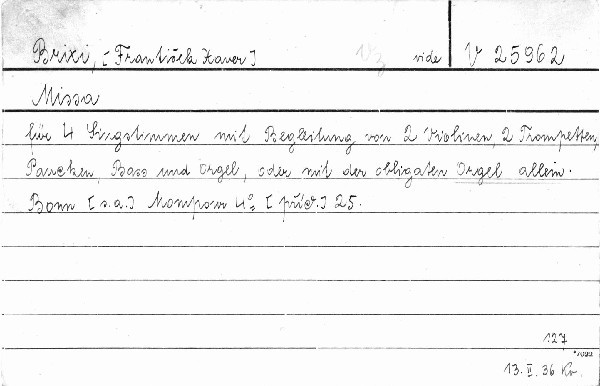 Brixi, [František Xaver] Vz vide V 25962
Missa
für 4 Singstimmen mit Begleitung von 2 Violinen, 2 Trompetten,
Paucken, Bass und Orgel, oder mit der obligaten Orgel allein.
Bonn [s.a.] Mompour 4° [příč.] 25.
127
13. II. 36 Kv.